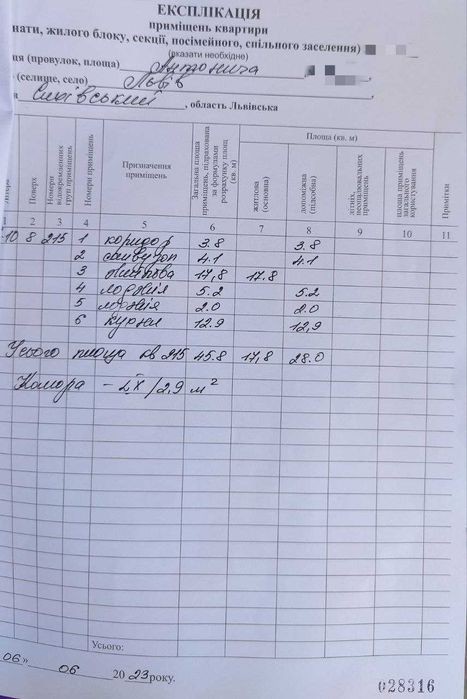 ЕКСПЛІКАЦІЯ
приміщень квартири
нати, жилого блоку, секції, посімейного, спільного заселення)
(вказати необхідне)
ця (провулок, площа) Антонича
(селище, село) Львів
Сихівський, область Львівська
Поверх
Номери відокремлених груп приміщень
Номери приміщень
Призначення приміщень
Загальна площа приміщень, підрахована за формулами розрахунку площ (кв. м)
Площа (кв. м)
житлова (основна)
допоміжна (підсобна)
літніх, неопалювальних приміщень
площа приміщень загального користування
Примітки
2 3 4 5 6 7 8 9 10 11
10 8 215 1 коридор 3.8 3.8
2 санвузол 4.1 4.1
3 житлова 17,8 17.8
4 лоджія 5.2 5.2
5 лоджія 2.0 2.0
6 кухня 12.9 12,9
Усього площа кв 215 45.8 17,8 28.0
Комора – IX / 2,9 м²
Усього:
06» 06 2023 року.
028316